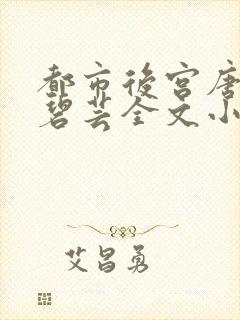 都市後宮唐
碧芸全文小
艾昌勇